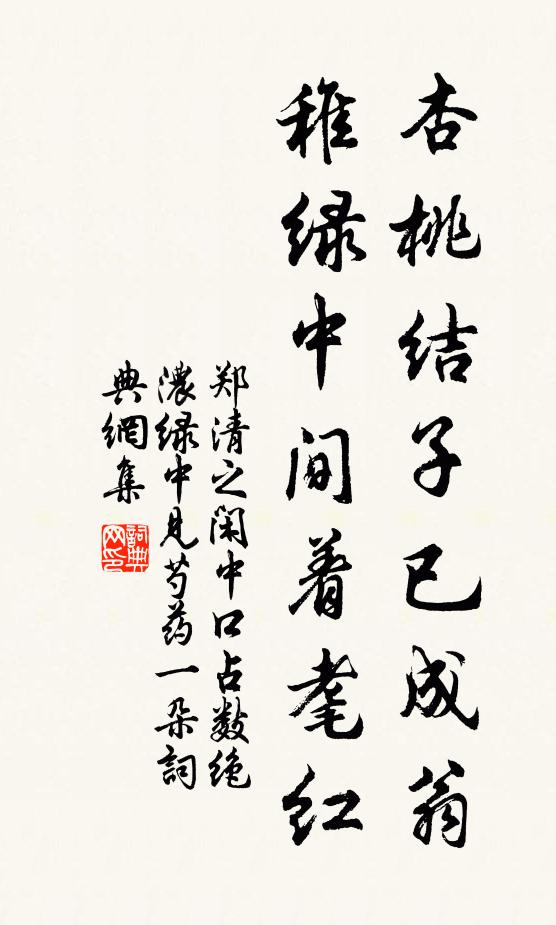 杏桃结子已成翁
稚绿中间着耄红
郑清之闲中口占数绝
浓绿中见芍药一朵詞
典網集
詞典网印